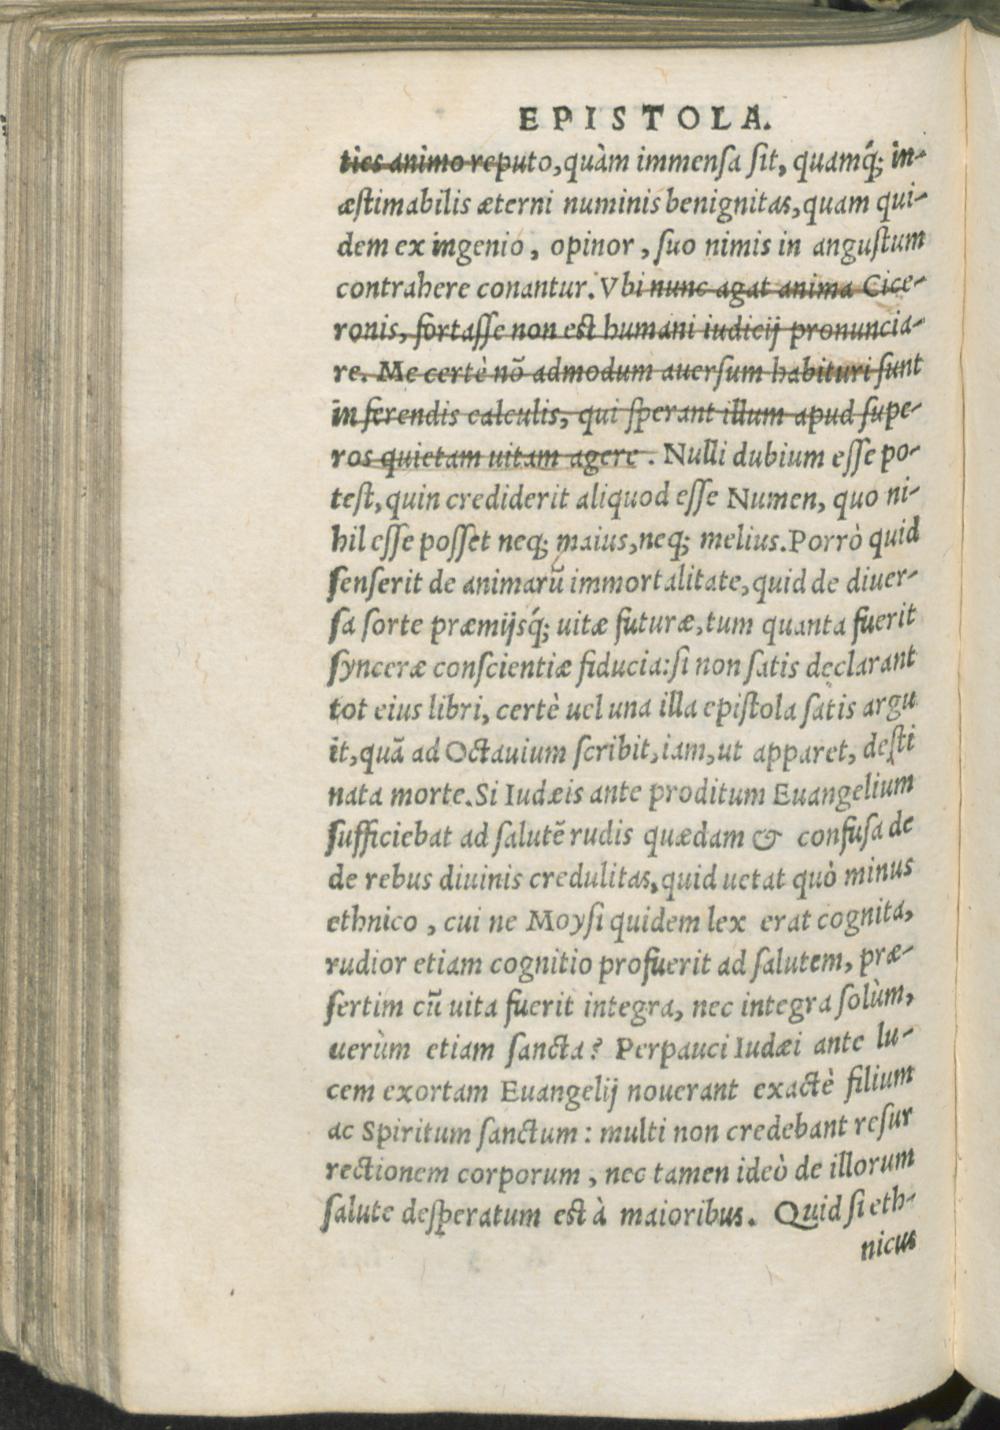 EPISTOLA.
ties animo reputo, quàm immenſa ſit, quamq́; in-
æſtimabilis æterni numinis benignitas, quam qui-
dem ex ingenio, opinor, ſuo nimis in anguſtum
contrahere conantur. Vbi nunc agat anima Cice-
ronis, fortaſſe non est humani iudicij pronuncia-
re. Me certè nõ admodum auerſum habituri ſunt
in ferendis calculis, qui ſperant illum apud ſupe-
ros quietam uitam agere. Nulli dubium eſſe po-
teſt, quin crediderit aliquod eſſe Numen, quo ni-
hil eſſe poſſet neq; maius, neq; melius. Porrò quid
ſenſerit de animarũ immortalitate, quid de diuer-
ſa ſorte præmijsq́; uitæ futuræ, tum quanta fuerit
ſynceræ conſcientiæ fiducia: ſi non ſatis declarant
tot eius libri, certè uel una illa epiſtola ſatis argu
it, quã ad Octauium ſcribit, iam, ut apparet, deſti
nata morte. Si Iudæis ante proditum Euangelium
ſufficiebat ad ſalutẽ rudis quædam & confuſa de
de rebus diuinis credulitas, quid uetat quò minus
ethnico, cui ne Moyſi quidem lex erat cognita,
rudior etiam cognitio profuerit ad ſalutem, præ-
ſertim cũ uita fuerit integra, nec integra ſolùm,
uerùm etiam ſancta? Perpauci Iudæi ante lu-
cem exortam Euangelij nouerant exactè filium
ac Spiritum ſanctum: multi non credebant reſur
rectionem corporum, nec tamen ideò de illorum
ſalute deſperatum est à maioribus. Quid ſi eth-
nicus